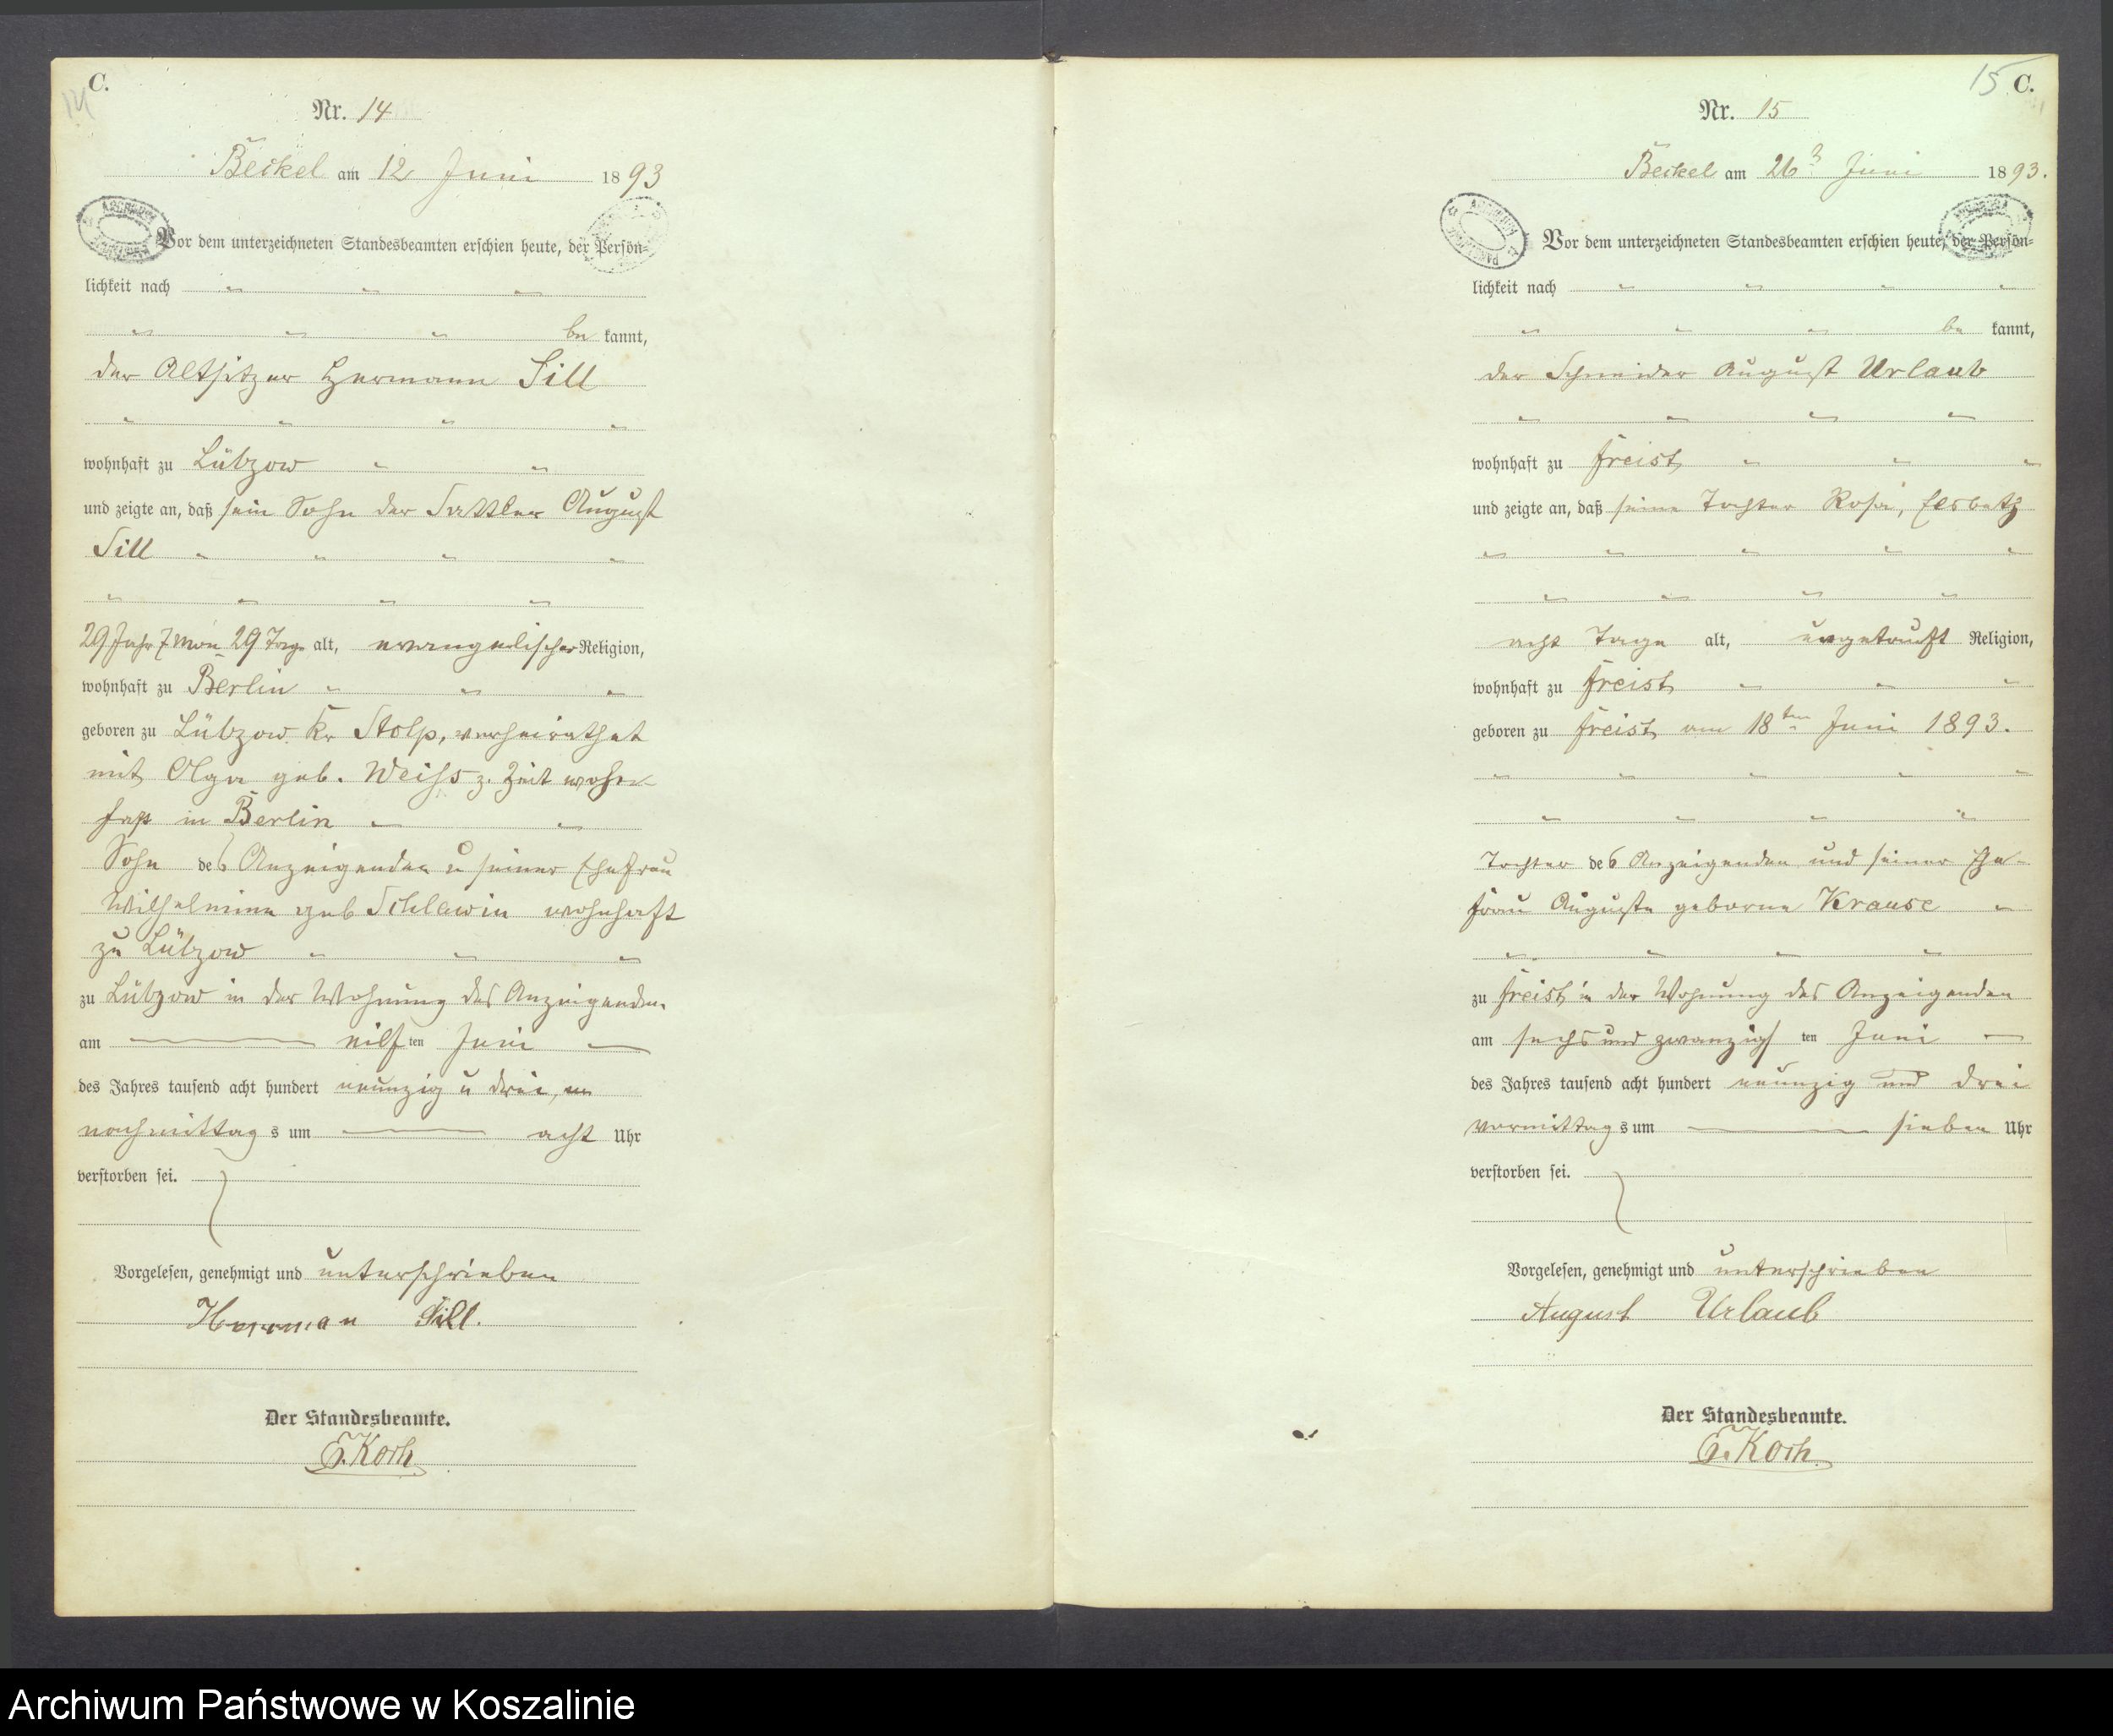 C.
14
Nr. 14
Beckel am 12 Juni 1893
Vor dem unterzeichneten Standesbeamten erschien heute, der Persön-
lichkeit nach
be kannt,
der Altsitzer Hermann Sill
wohnhaft zu Lübzow
und zeigte an, daß sein Sohn der Sattler August
Sill
29 Jahr 7 Mon 29 Tage alt, evangelischer Religion,
wohnhaft zu Berlin
geboren zu Lübzow Kr Stolp, verheirathet
mit Olga geb. Weiss z. Zeit wohn-
haft in Berlin
Sohn des Anzeigenden u seiner Ehefrau
Wilhelmine geb Schlawin wohnhaft
zu Lübzow
zu Lübzow in der Wohnung des Anzeigenden
am eilf ten Juni
des Jahres tausend acht hundert neunzig u drei,
nachmittag s um acht Uhr
verstorben sei.
Vorgelesen, genehmigt und unterschrieben
Herman Sill.
Der Standesbeamte.
G. Koch
15 C.
Nr. 15
Beckel am 26 Juni 1893.
Vor dem unterzeichneten Standesbeamten erschien heute, der Persön-
lichkeit nach
be kannt,
der Schneider August Urlaub
wohnhaft zu Freist
und zeigte an, daß seine Tochter Rosa, Elsbeth
acht Tage alt, ungetauft Religion,
wohnhaft zu Freist
geboren zu Freist am 18ten Juni 1893.
Tochter des Anzeigenden und seiner Ehe-
frau Auguste geborne Krause
zu Freist in der Wohnung des Anzeigenden
am sechs und zwanzigs ten Juni
des Jahres tausend acht hundert neunzig und drei
vormittag s um sieben Uhr
verstorben sei.
Vorgelesen, genehmigt und unterschrieben
August Urlaub
Der Standesbeamte.
G. Koch
Archiwum Państwowe w Koszalinie